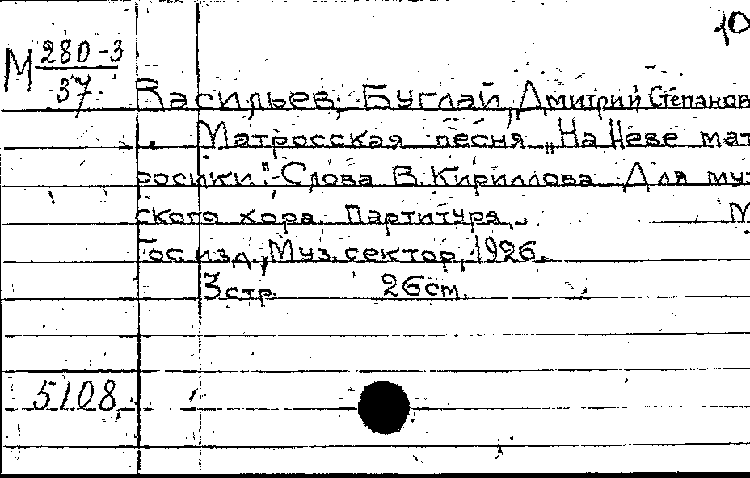 10
М 280-3
37.
Васильев-Буглай, Дмитрий Степанов
Матросская песня „На Неве мат
росики." Слова В. Кириллова. Для муж
ского хора. Партитура. М
Гос. изд., Муз. сектор, 1926.
3 стр. 26 cm.
5108